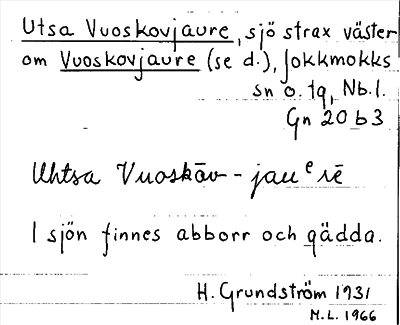 Utsa Vuoskovjaure, sjö strax väster
om Vuoskovjaure (se d.), Jokkmokks
sn o. tg, Nb.l.
Gn 20 b3
Uhtsa Vuoskāv-jauᵉrē
I sjön finnes abborr och gädda.
H. Grundström 1931
M.L. 1966